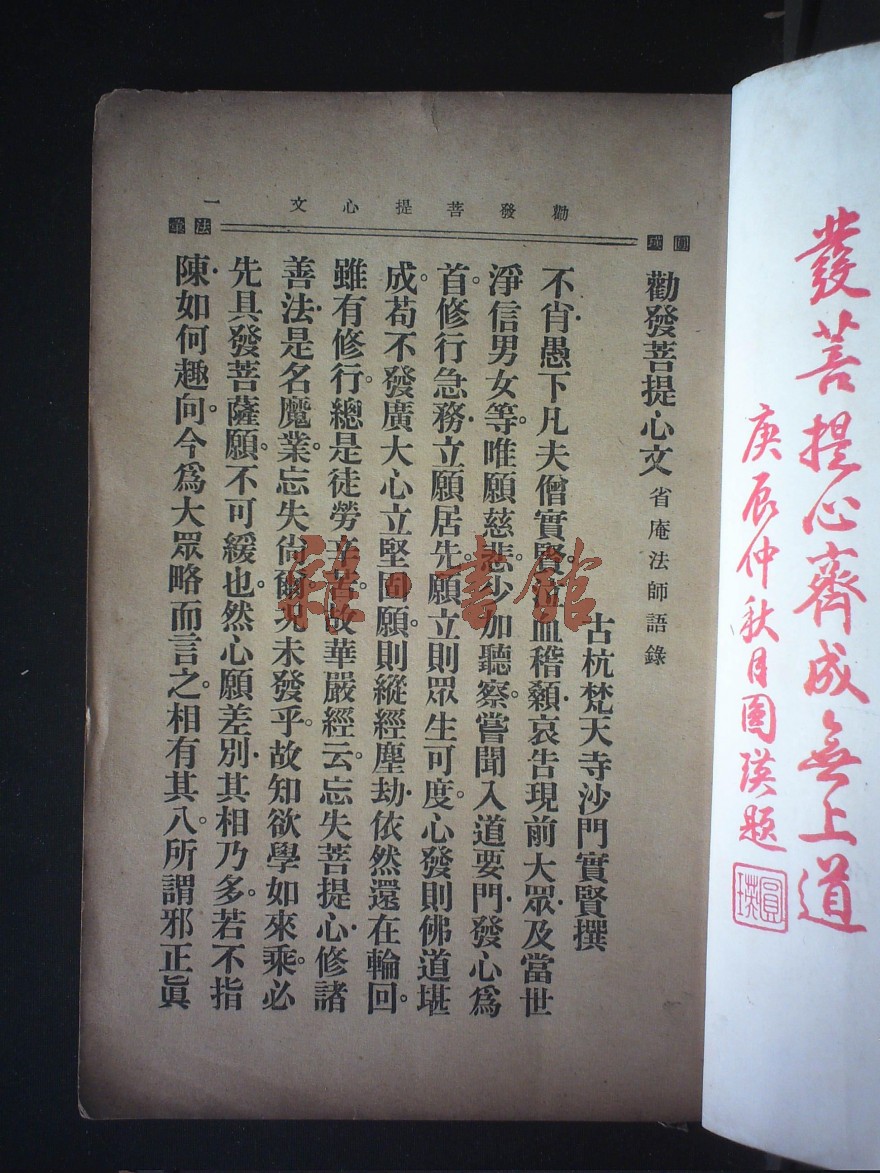 發菩提心齊成無上道
庚辰仲秋月圓瑛題
圓瑛
勸發菩提心文 一
圓瑛
法彙
勸發菩提心文 省庵法師語錄
古杭梵天寺沙門實賢撰
不肖愚下凡夫僧實賢。泣血稽顙。哀告現前大眾。及當世
淨信男女等。唯願慈悲。少加聽察。嘗聞入道要門。發心為
首。修行急務。立願居先。願立則眾生可度。心發則佛道堪
成。苟不發廣大心。立堅固願。則縱經塵劫。依然還在輪回。
雖有修行。總是徒勞辛苦。故華嚴經云。忘失菩提心。修諸
善法。是名魔業。忘失尚爾。況未發乎。故知欲學如來乘。必
先具發菩薩願。不可緩也。然心願差別。其相乃多。若不指
陳。如何趣向。今爲大眾略而言之。相有其八。所謂邪正眞
雜·書館